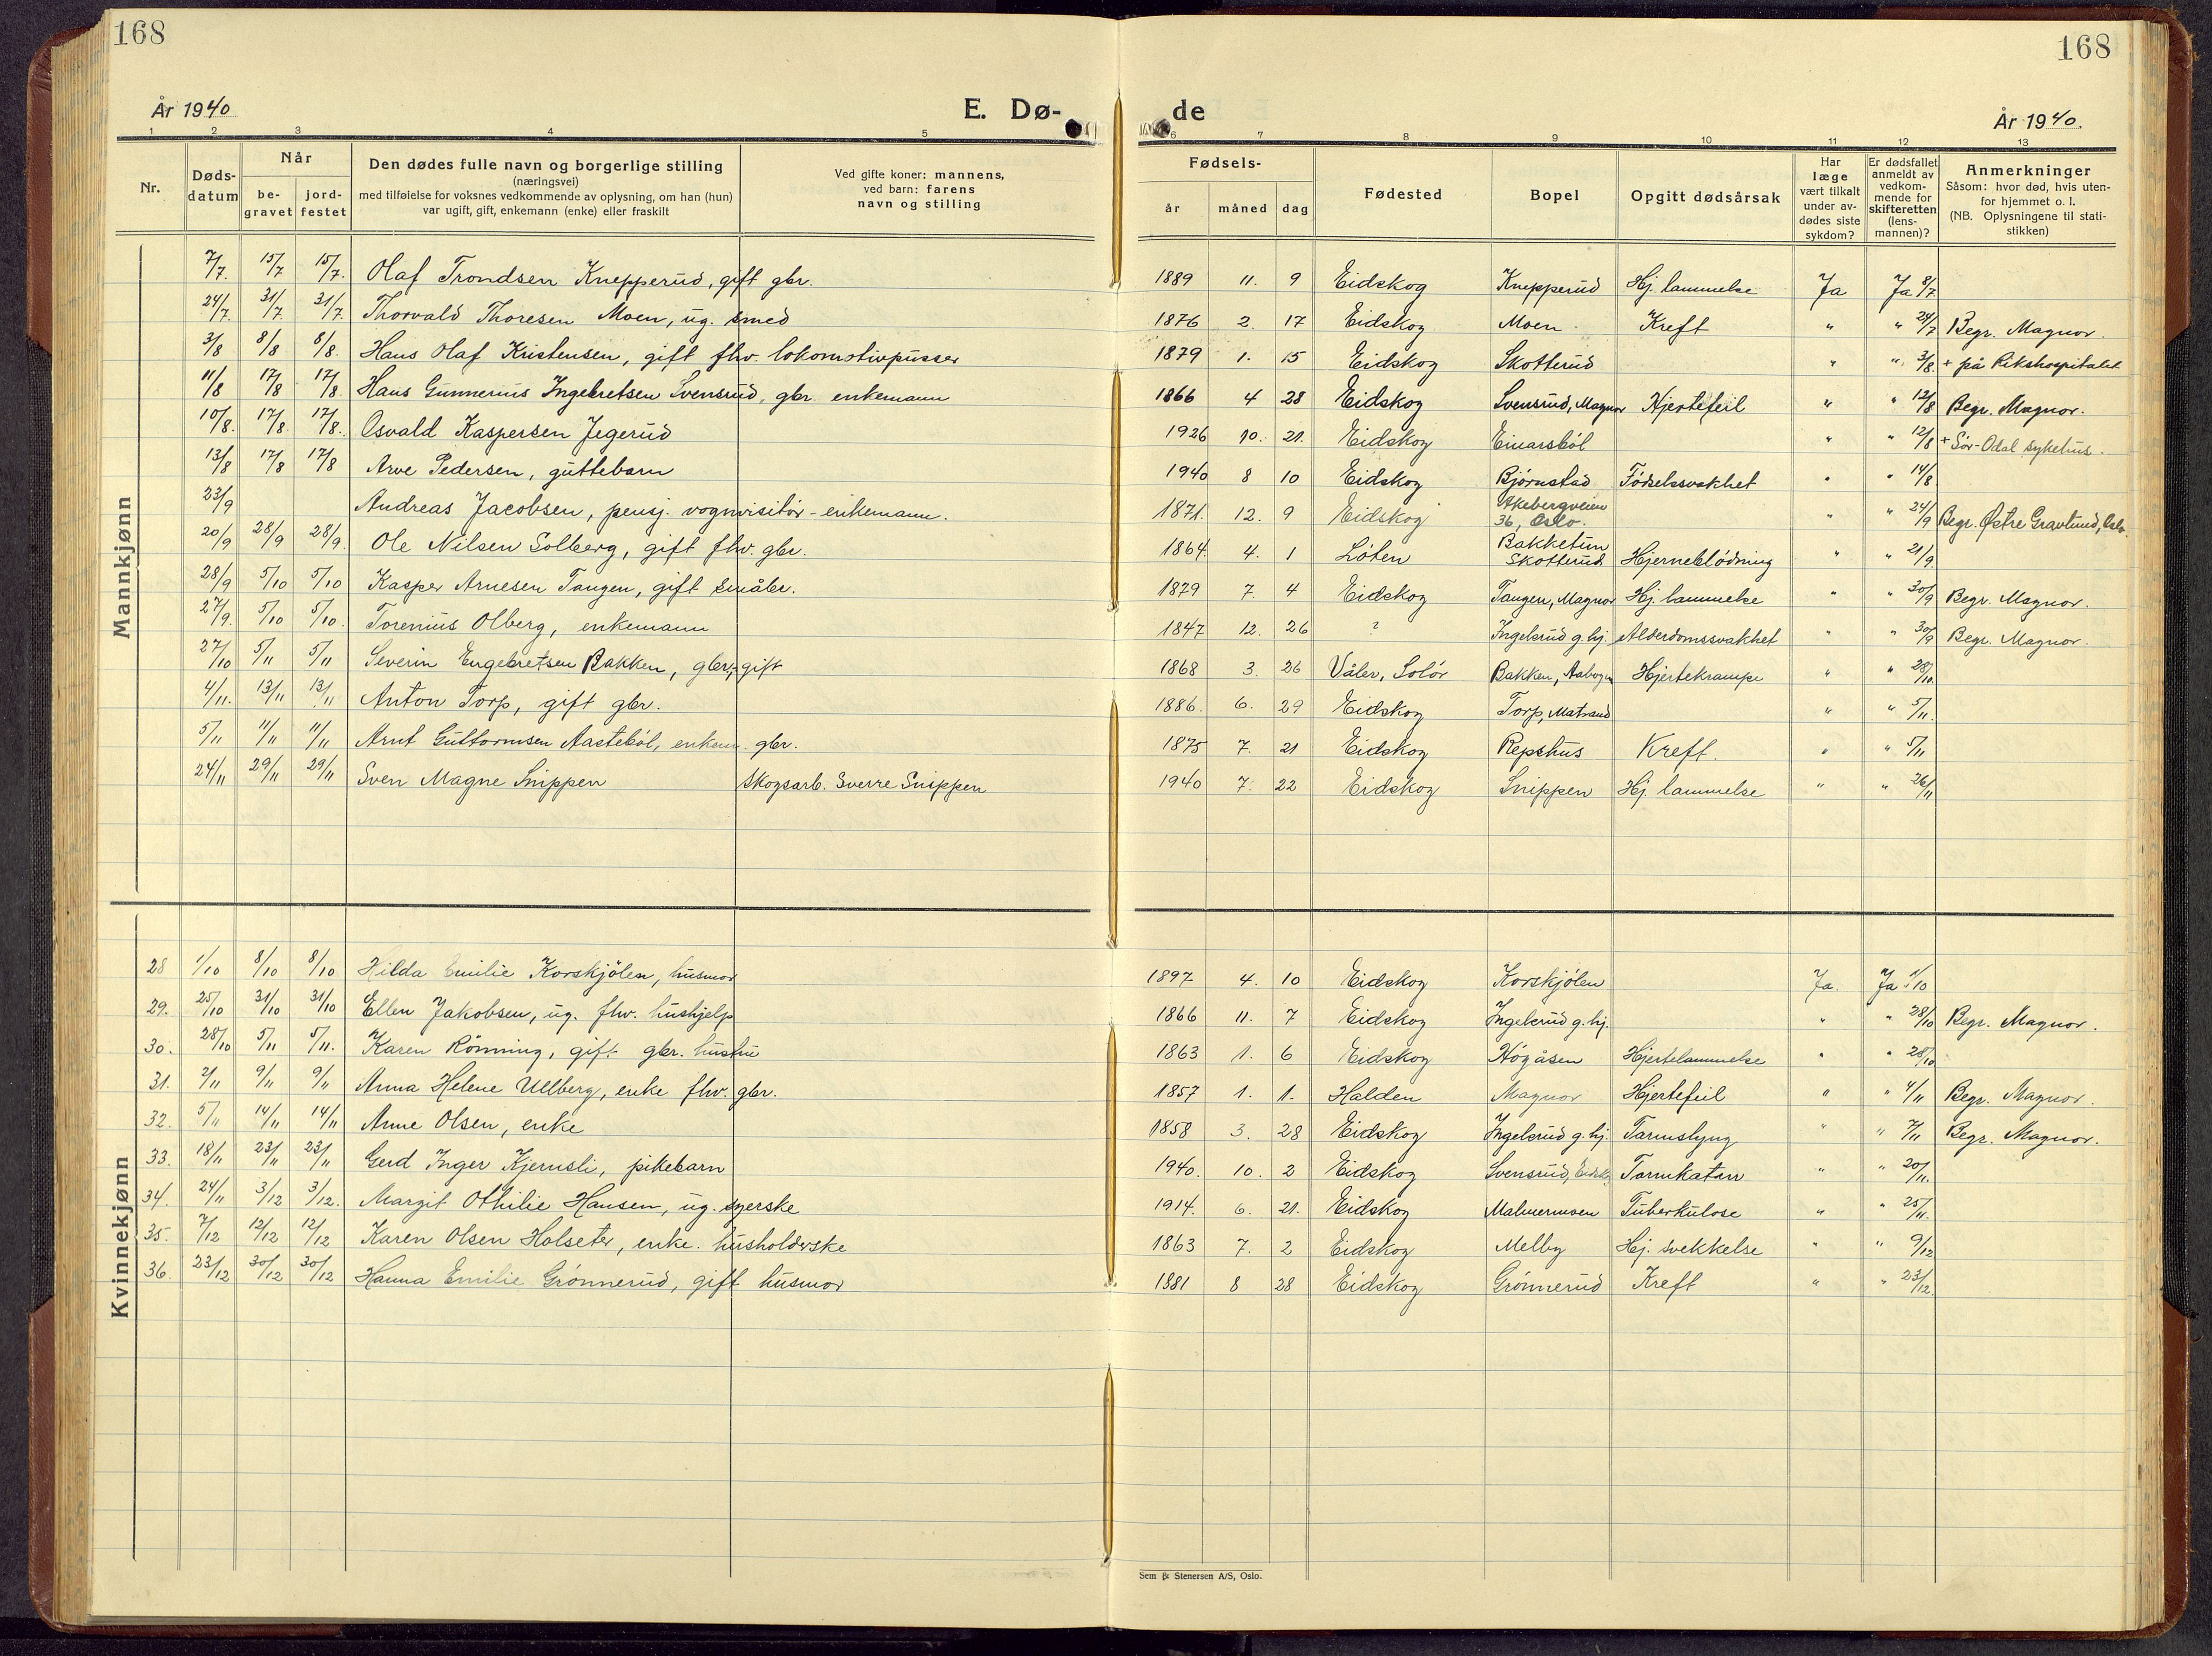 168
168
År 1940
E. Dø-
de
År 1940.
1 2 3 4 5 6 7 8 9 10 11 12 13
Nr.
Døds-
datum
Når
be-
gravet
jord-
festet
Den dødes fulle navn og borgerlige stilling
(næringsvei)
med tilføielse for voksnes vedkommende av oplysning, om han (hun)
var ugift, gift, enkemann (enke) eller fraskilt
Ved gifte koner: mannens,
ved barn: farens
navn og stilling
Fødsels-
år måned dag
Fødested
Bopel
Opgitt dødsårsak
Har
læge
vært tilkalt
under av-
dødes siste
sykdom?
Er dødsfallet
anmeldt av
vedkom-
mende for
skifteretten
(lens-
mannen)?
Anmerkninger
Såsom: hvor død, hvis uten-
for hjemmet o. l.
(NB. Oplysningene til stati-
stikken)
Mannkjønn
7/7. 15/7 15/7. Olaf Trondsen Knepperud, gift gbr. 1889 11. 9 Eidskog Knepperud Hj. lammelse Ja Ja 8/7
24/7. 31/7. 31/7. Thorvald Thoresen Moen, ug. smed 1876 2. 17 Eidskog Moen Kreft " " 24/7 Begr. Magnor.
3/8 8/8 8/8. Hans Olaf Kristensen, gift fhv. lokomotivpusser 1879 1. 15 Eidskog Skotterud " " 3/8. + på Rikshospitalet
11/8 17/8 17/8. Hans Gunnerius Ingebretsen Svensrud, gbr. enkemann 1866 4 28 Eidskog Svensrud, Magnor Hjertefeil " " 12/8 Begr. Magnor.
10/8. 17/8. 17/8. Osvald Kaspersen Jegerud 1926 10. 21. Eidskog Einarsböl " " 12/8 + Sör-Odal sykehus.
13/8 17/8 17/8 Arve Pedersen, guttebarn 1940 8 10 Eidskog Bjørnstad Fødselssvakhet " " 14/8
23/9 Andreas Jacobsen, pensj. vognvisitør - enkemann. 1871. 12. 9 Eidskog Akebergveien 36, Oslo. " " 24/9 Begr. Østre Gravlund, Oslo.
20/9 28/9 28/9. Ole Nilsen Solberg, gift fhv. gbr. 1864. 4. 1 Löten Bakketun Skotterud Hjerneblödning " " 21/9.
28/9 5/10 5/10 Kasper Arnesen Tangen, gift småbr. 1879 7. 4 Eidskog Tangen, Magnor Hj. lammelse " " 30/9 Begr. Magnor.
27/9. 5/10 5/10. Torenius Olberg, enkemann 1847 12. 26 ? Ingelsrud g.hj. Alderdomssvakhet " " 30/9 Begr. Magnor.
27/10 5/11 5/11 Severin Engebretsen Bakken, gbr., gift 1868 3. 26 Våler, Solör Bakken, Aabogen Hjertekrampe " " 28/10.
4/11. 13/11 13/11 Anton Torp, gift gbr. 1886. 6. 29 Eidskog Torp, Matrand " " 5/11.
5/11 11/11 11/11 Arnt Guttormsen Aasteböl, enkem. gbr. 1875 7. 21 Eidskog Repshus Kreft. " " 5/11
24/11 29/11 29/11 Sven Magne Snippen Skogsarb. Sverre Snippen 1940 7. 22 Eidskog Snippen Hj. lammelse " " 26/11
Kvinnekjønn
28 1/10 8/10 8/10 Hilda Emilie Korskjölen, husmor 1897 4. 10 Eidskog Korskjölen Ja. Ja 1/10
29. 25/10 31/10 31/10 Ellen Jakobsen, ug. fhv. hushjelp 1866 11. 7 Eidskog Ingelsrud g.hj. " " 28/10 Begr. Magnor.
30. 28/10 5/11 5/11. Karen Rönning, gift gbr. hustru 1863 1. 6 Eidskog Högåsen Hjertelammelse " " 28/10
31. 2/11 9/11 9/11 Anna Helene Ullberg, enke fhv. gbr. 1857 1. 1. Halden Magnor Hjertefeil " " 4/11 Begr. Magnor.
32. 5/11 14/11 14/11 Anne Olsen, enke 1858 3. 28 Eidskog Ingelsrud g.hj. Tarmslyng " " 7/11 Begr. Magnor.
33. 18/11 23/11 23/11 Gerd Inger Kjernsli, pikebarn 1940. 10. 2 Eidskog Svensrud, Eidskog Tarmkatarr " " 20/11.
34. 24/11 3/12 3/12. Margit Othilie Hansen, ug. syerske 1914. 6. 21. Eidskog Malmermoen Tuberkulose " " 25/11.
35. 7/12 12/12 12/12 Karen Olsen Holseter, enke. husholderske 1863 7. 2 Eidskog Melby Hj. svekkelse " " 9/12
36. 23/12 30/12 30/12 Hanna Emilie Grönnerud, gift husmor 1881 8 28 Eidskog Grönnerud Kreft " " 23/12.
Sem & Stenersen A/S, Oslo.